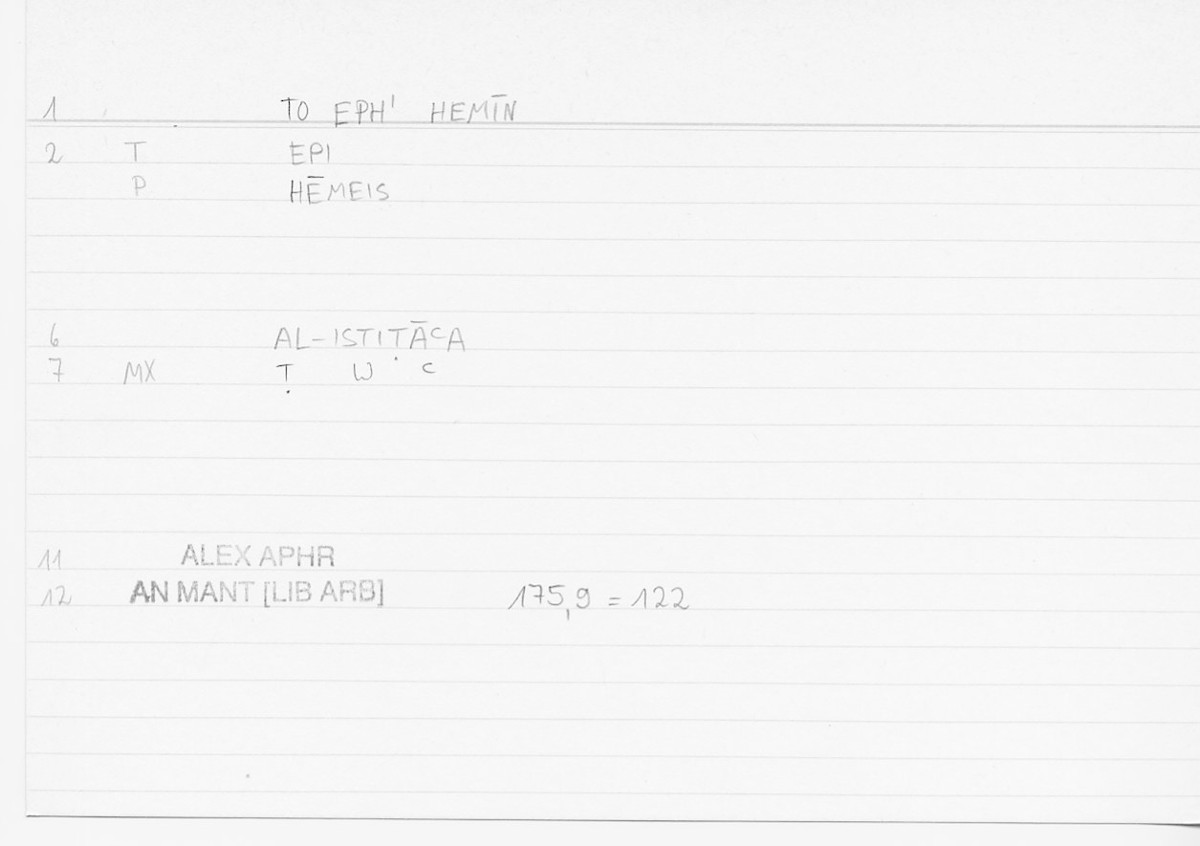 1 TO EPH' HEMĪN
2 T EPI
P HĒMEIS
6 AL-ISTITĀCA
7 MX Ṭ W C
11 ALEX APHR
12 AN MANT [LIB ARB] 175,9 = 122